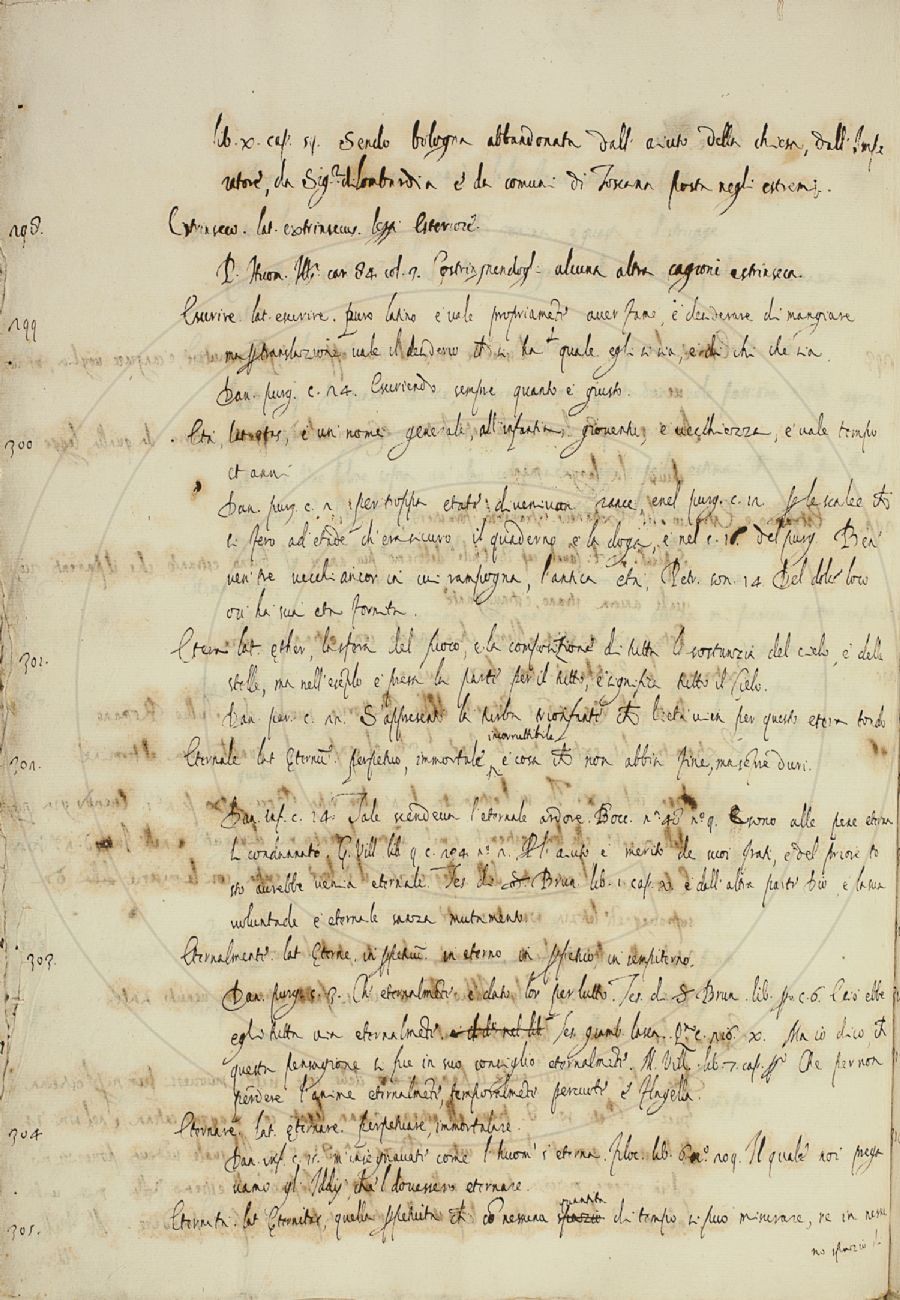 lib. x. cap. 54. Sendo bologna abbandonata dall' aiuto della chiesa, dall' Impe
ratore, da Sig.ri di lombardia e da comuni di Toscana posta negli estremi.
298. Estrinseco. lat. extrinsecus. leggi Esteriore.
alcuna altra cagione estrinseca.
299 Esurire. lat. esurire. puro latino e vale propriamente aver fame, e desiderare di mangiare
ma translazione vale il desiderio si ha quale egli si sia, e di chi che sia.
Dan. purg. c. 24. Esuriendo sempre quanto e giusto.
300 Età, lat. etas, è un nome generale, all' infantia, gioventu, e vecchiezza, e vale tempo
et anni
Dan. purg. c. 2. per troppa etate divenivan rance, e nel purg. c. 12. le scalee che
si fero ad etade ch' era sicuro il quaderno e la doga, e nel c. 16. del purg. Ben
ven tre vecchi ancor in cui rampogna, l' antica età, Petr. son. 14. Del dolce loco
ov' ha sua eta fornita.
301. Etera lat. ęther, la sfera del fuoco, e la compositione di tutta la sostanzia del cielo, e delle
stelle, ma nell' esemplo è presa la parte per il tutto, e significa tutto il Cielo.
Dan. par. c. 22. S' appresenti la turba trionfante che lieta vien per questo etera tondo
incorruttibile
302. Eternale lat. perpetuo, immortale, e cosa che non abbia fine, ma sempre duri.
Dan. inf. c. 14. Tale scendeva l' eternale ardore. Bocc. n. 48 n.o 9. sono alle pene eterna
li condannato. G. Vill. lib. 9 c. e merito de suoi frati, e del priore to
sto avrebbe venia eternale. Tes. di Brun. lib. 1 cap. e dall' altra parte Dio, e la sua
voluntade è eternale sanza mutamento.
303. Eternalmente. lat. Eterne, in in eterno in perpetuo, in sempiterno.
Dan. purg. c. 3. Ch' eternalmente è dato lor per lutto. Tes. di Brun. lib. c. 6. Così ebbe
egli tutta via eternalmente. x. Ma io dico che
questa pensagione si fue in suo consiglio eternalmente. M. Vill. lib. 7. cap. Che per non
perdere l' anime eternalmente, temporalmente percuote e flagella.
304 Eternare. lat. ęternare. perpetuare, immortalare.
Dan. inf. c. 15. m' insegnavate come l' huom s' eterna. Filoc. lib. 6 n.o 209. Il quale noi prega
vamo gl' Iddij, che 'l dovessero eternare.
quantita
305. Eternità. lat. Eternitas, quella che con nessuna spazio di tempo si puo misurare, ne in nessu
no spazio